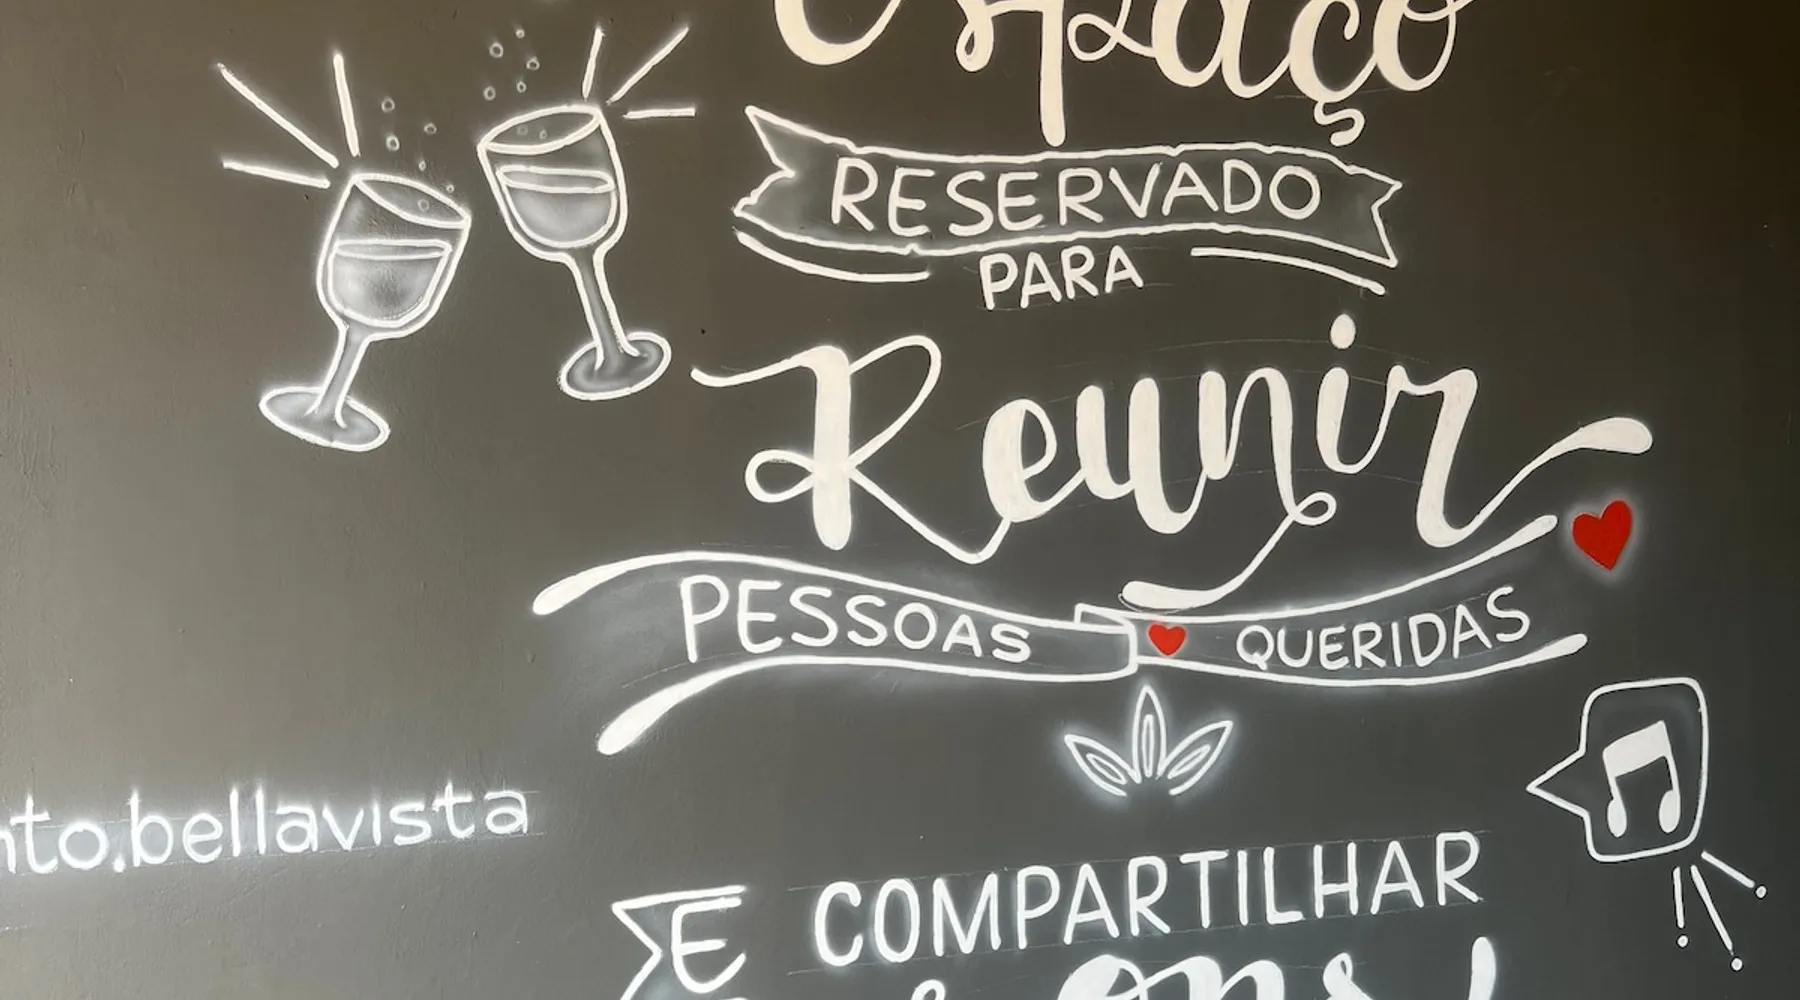 espaço
RESERVADO
PARA
Reunir
PESSOAS QUERIDAS
nto.bellavista
E COMPARTILHAR